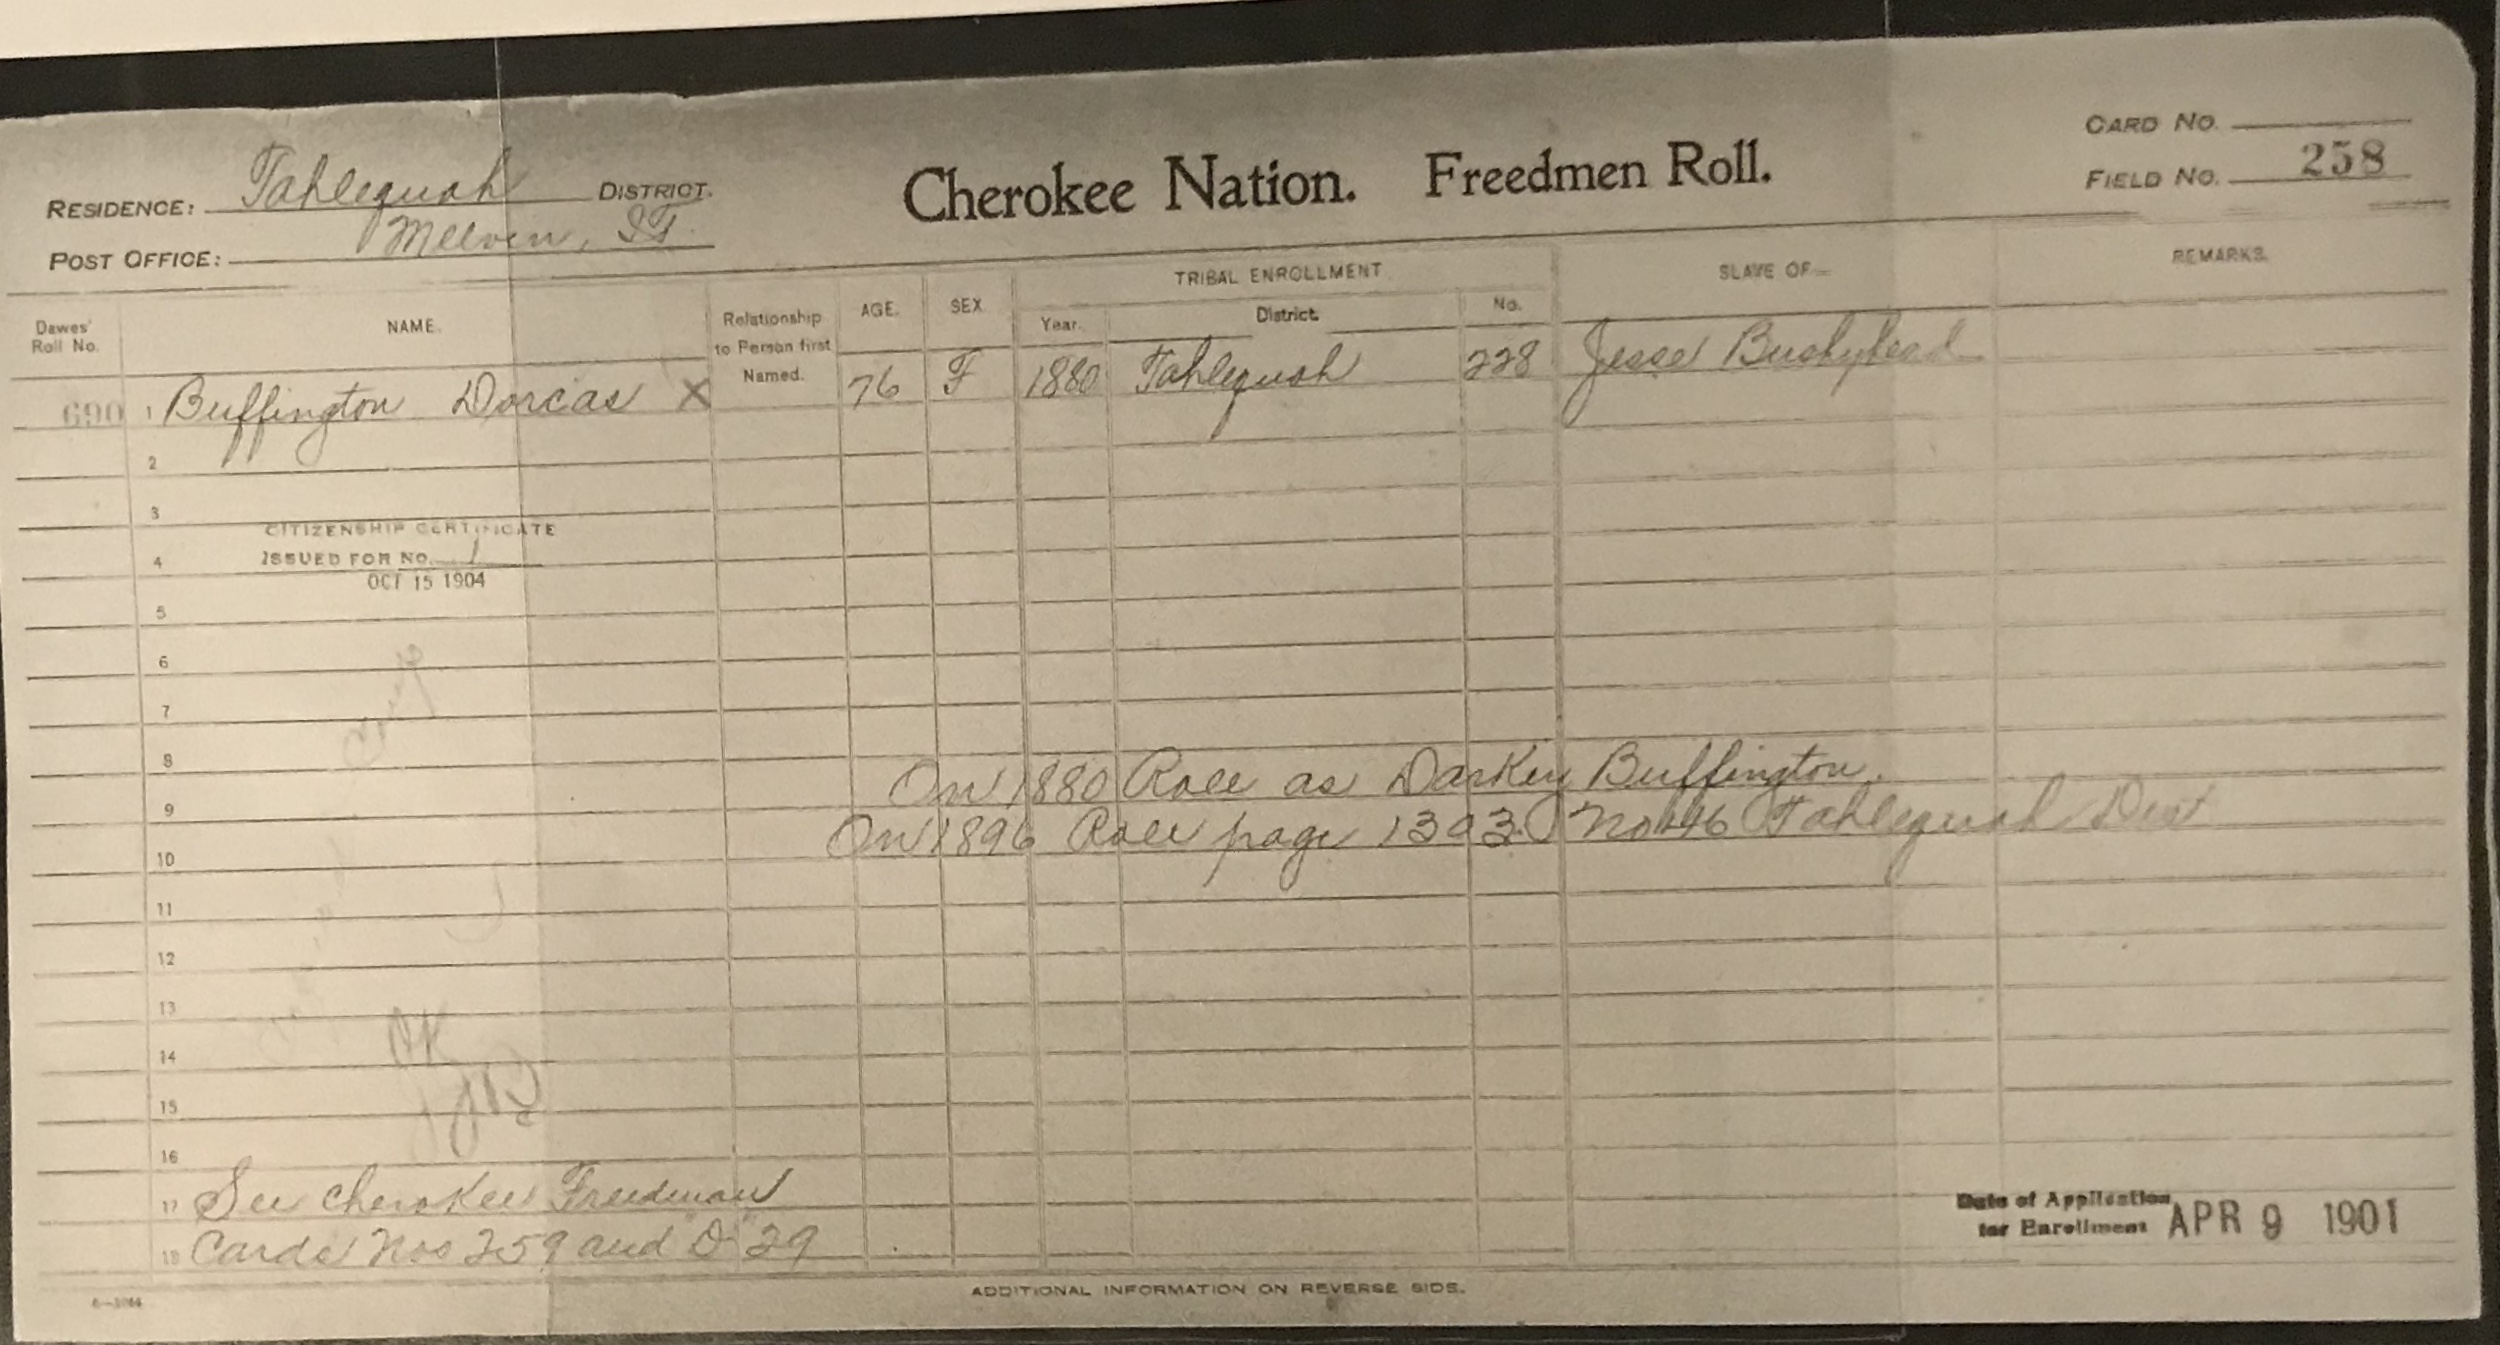 Cherokee Nation. Freedmen Roll.
RESIDENCE: Tahlequah DISTRICT.
POST OFFICE: Melvin, I.T.
CARD NO.
FIELD NO. 258
Dawes' Roll No.
NAME.
Relationship to Person first Named.
AGE.
SEX
TRIBAL ENROLLMENT
Year.
District.
No.
SLAVE OF—
REMARKS.
690 1 Buffington Dorcas X 76 F 1880 Tahlequah 228 Jesse Bushyhead
2
3
CITIZENSHIP CERTIFICATE
4 ISSUED FOR NO. 1
OCT 15 1904
5
6
7
8
On 1880 Roll as Darkey Buffington.
9
On 1896 Roll page 1303 No 146 Tahlequah Dist
10
11
12
13
OK
14
15
16
17 See Cherokee Freedman
18 Cards Nos 259 and "D" 29
Date of Application
for Enrollment APR 9 1901
ADDITIONAL INFORMATION ON REVERSE SIDE.